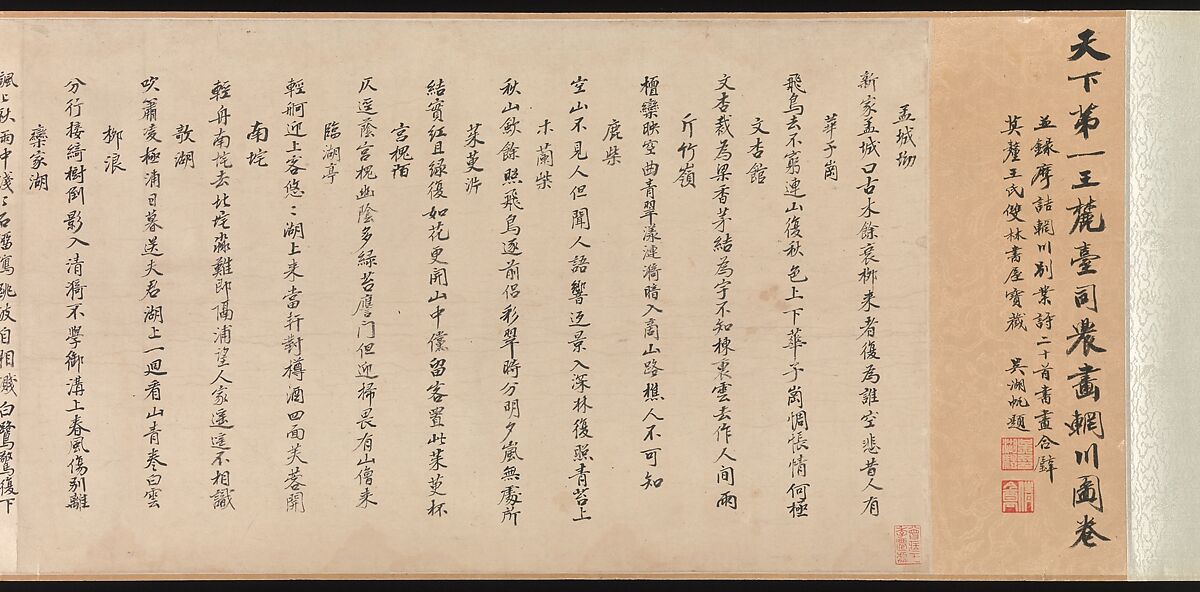 天下第一王麓臺司農畫輞川圖卷
並錄摩詰輞川別業詩二十首書畫合璧
莫釐王氏雙林書屋寶藏 吳湖帆題
孟城坳
新家孟城口古木餘衰柳來者復為誰空悲昔人有
華子崗
飛鳥去不窮連山復秋色上下華子崗惆悵情何極
文杏館
文杏裁為梁香茅結為宇不知棟裏雲去作人間雨
斤竹嶺
檀欒映空曲青翠漾漣漪暗入商山路樵人不可知
鹿柴
空山不見人但聞人語響返景入深林復照青苔上
木蘭柴
秋山斂餘照飛鳥逐前侶彩翠時分明夕嵐無處所
茱萸沜
結實紅且綠復如花更開山中儻留客置此茱萸杯
宮槐陌
仄逕蔭宮槐幽陰多綠苔應門但迎掃畏有山僧來
臨湖亭
輕舸迎上客悠〻湖上來當軒對樽酒四面芙蓉開
南垞
輕舟南垞去北垞淼難即隔浦望人家遙遙不相識
欹湖
吹簫凌極浦日暮送夫君湖上一迴看山青卷白雲
柳浪
分行接綺樹倒影入清漪不學御溝上春風傷別離
欒家湖
颯〻秋雨中淺〻石溜瀉跳波自相濺白鷺驚復下